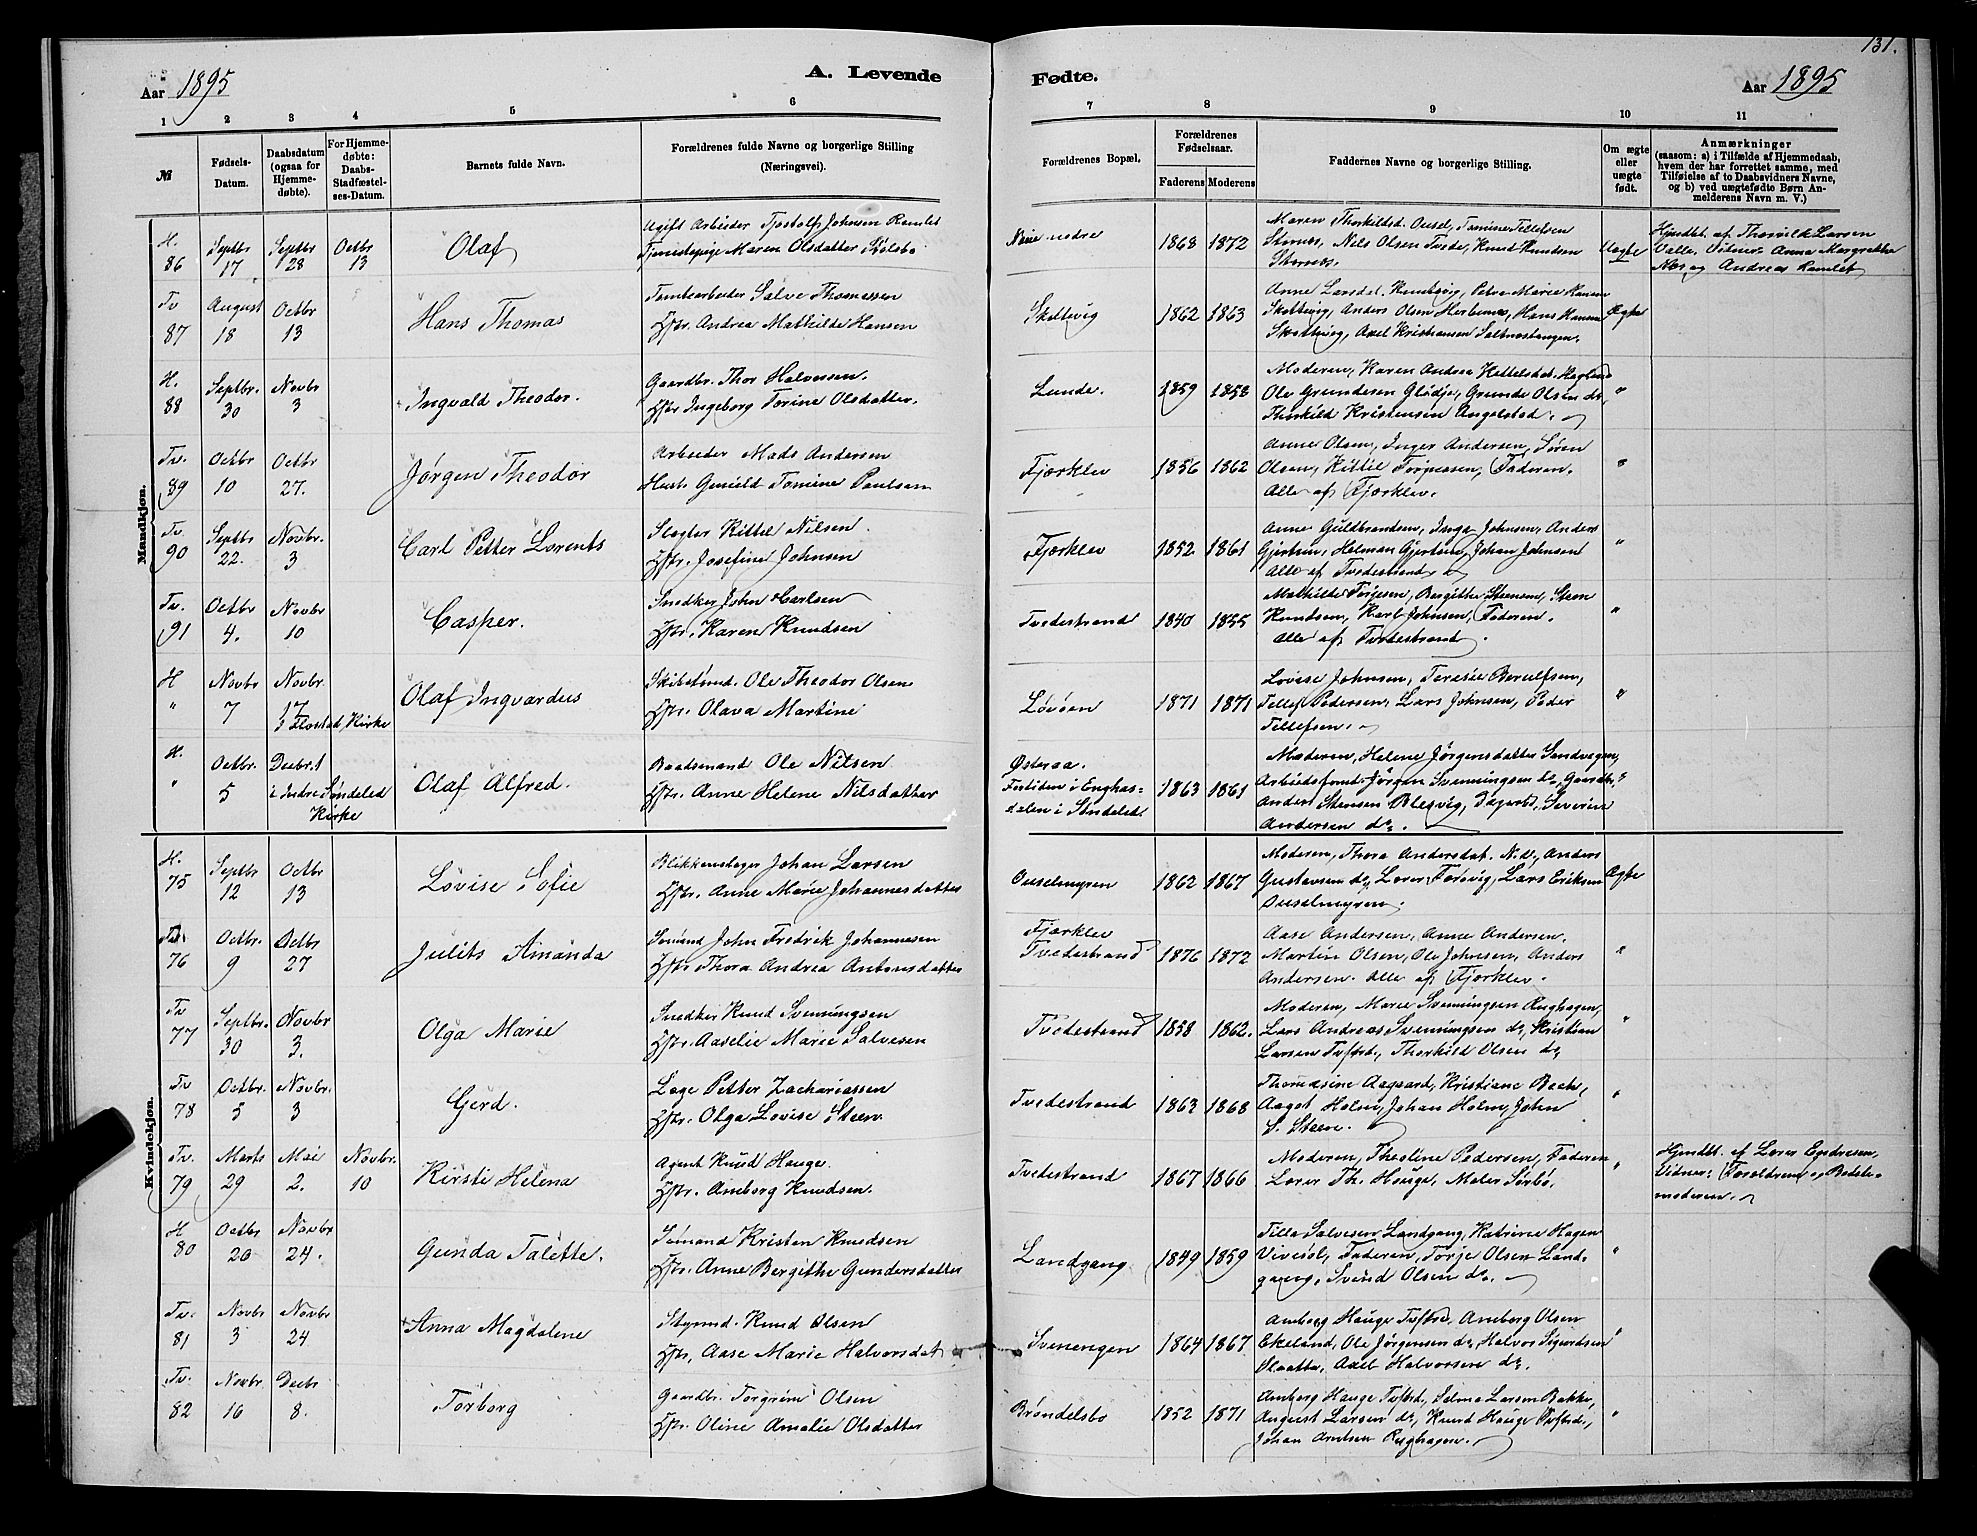 131.
Aar 1895 A. Levende Fødte. Aar 1895
1 2 3 4 5 6 7 8 9 10 11
№ Fødsels-Datum. Daabsdatum (ogsaa for Hjemmedøbte). For Hjemmedøbte: Daabs-Stadfæstelses-Datum. Barnets fulde Navn. Forældrenes fulde Navne og borgerlige Stilling (Næringsvei). Forældrenes Bopæl. Forældrenes Fødselsaar. Faderens Moderens Faddernes Navne og borgerlige Stilling. Om ægte eller uægte født. Anmærkninger (saasom: a) i Tilfælde af Hjemmedaab, hvem der har forrettet samme, med Tilføielse af to Daabsvidners Navne, og b) ved uægtefødte Børn Anmelderens Navn m. V.)
Mandkjøn.
H. 86 Septbr 17 Septbr 28 Octbr 13 Olaf
Ugift Arbeider Tjostolf Johnsen Ramlet
Tjenestepige Maren Olsdatter
nedre 1868 1872
Maren Thorkildsd. Ousel, Tomine Tellefsen
Nels Olsen Tvede, Knud Knudsen
Uægte
Hjmdbt. af Thorvild Larsen
Valle. Vitner: Anna Margrethe
Næs og Andreas Ramlet
Tv 87 August 18 Octbr 13 Hans Thomas
Tomtearbeider Salve Thomassen
Hstr. Andrea Mathilde Hansen
Skottevig 1862 1863
Anne Larsdat. Knutevig, Petra Marie Hansen
Skottevig, Anders Olsen Hans Hansen
Skottevig, Axel Kristiansen Saltnestangen.
Ægte
H. 88 Septbr. 30 Novbr 3 Ingvald Theodor.
Gaardbr. Thor Halvorsen.
Hstr Ingeborg Torine Olsdatter.
Lunde. 1859 1858
Moderen, Karen Andrea Kittelsdat. Hagland
Ole Grundesen Glødje, Grunde Olsen do,
Thorkild Kristensen Angelstad.
"
Tv. 89 Octbr 10 Octbr 27. Jørgen Theodor
Arbeider Mads Andersen
Hust. Gunild Tomine Paulsen
Fjærklev 1856 1862
Anne Olsen, Inger Andersen, Søren
Olsen, Kittil Torjussen, Faderen.
Alle af Fjærklev.
"
Tv. 90 Septbr 22. Novbr. 3 Carl Petter Lorents
Slagter Kittel Nilsen.
Hstr. Josefine Johnsen
Fjærklev 1852 1861
Anne Guldbrandsen, Inga Johnsen, Anders
Gjertsen, Helman Gjertsen, Johan Johnsen
Alle af Tvedestrand.
"
Tv. 91 Octbr 4. Novbr 10 Casper.
Snedker John Carlsen
Hstr. Karen Knudsen
Tvedestrand 1840 1855
Mathilde Tørjesen, Bergitte Steensen, Steen
Knudsen, Karl Johnsen, Faderen.
Alle af Tvedestrand.
"
H " Novbr 7 Novbr. 17 i Flostad Kirke Olaf Ingvardus
Skibstømd. Ole Theodor Olsen
Hstr. Olava Martine
Løvøen 1871 1871
Lovise Johnsen, Teresie Berulfsen,
Tellef Pedersen, Lars Johnsen, Peder
Tellefsen.
"
H. " Octbr. 5 Decbr. 1 i Indre Søndeled Kirke Olaf Alfred.
Baadsmand Ole Nilsen
Hstr. Anne Helene Nilsdatter
Østeraa.
Fortiden i Enghas-
dalen i Søndeled. 1863 1861
Moderen, Helene Jørgensdatter Sandvegen,
Arbeidsfmd. Jørgen Svenningsen do, Gaardbr.
Anders Stensen Blegvig, Severine
Andersen do.
Kvindekjøn.
H. 75 Septbr 12 Octbr 13 Lovise Sofie
Blikkenslager Johan Larsen
Hstr. Anne Marie Johannesdatter
Ouselmyren 1862 1867
Moderen, Thora Andersdat. N.d., Anders
Gustavsen do, Lovis Lars Eriksen
Ouselmyren.
Ægte
Tv. 76 Octbr. 9 Octbr 27 Julits Amanda
Sømand John Fredrik Johannesen
Hstr Thora Andrea Antonsdatter
Fjærklev
Tvedestrand 1876 1872
Aase Andersen, Anne Andersen.
Martin Olsen, Ole Johnsen, Anders
Andersen. Alle af Fjærklev.
"
Tv 77 Septbr. 30 Novbr 3. Olga Marie
Snedker Knud Svenningsen
Hstr. Aaselie Marie Salvesen
Tvedestrand 1858 1862.
Moderen, Marie Svenningsen Rughagen,
Lars Andreas Svenningsen do, Kristian
Larsen Tvstrd., Thorkild Olsen do,
"
Tv 78 Octbr. 5 Novbr. 3 Gerd.
Læge Petter Zachariassen
Hstr. Olga Lovise Steen.
Tvedestrand 1863 1868
Thomasine Aagaard, Kristiane Bech,
Aagot Holm, Johan Holm, John
S. Steen.
"
Tv. 79 Marts 29 Mai 2. Novbr. 10 Kirsti Helena
Agent Knud Hauge.
Hstr. Amborg Knudsen.
Tvedestrand 1867 1866
Moderen, Theoline Pedersen, Faderen
Lærer Th. Hauge, Maler Sørbø.
"
Hjmdbt. af Lærer Endresen,
Vidner: Foreldrene og Bedste-
moderen.
H 80 Octbr 20 Novbr 24. Gunda Talette.
Sømand Kristen Knudsen
Hstr. Anne Bergithe Gundersdatter
Landgang 1849 1859
Tilla Salvesen Landgang, Katrine Hagen
Vivesøl, Faderen, Torje Olsen Land-
gang, Svend Olsen do.
"
Tv. 81 Novbr 3 Novbr 24 Anna Magdalene
Styrmd. Knud Olsen
Hstr. Aase Marie Halvorsdat
Svenengen 1864 1867
Amborg Hauge Tvstrd, Amborg Olsen
Ekeland, Ole Jørgensen do, Halvor Sigurdsen
Slaatte, Axel Halvorsen do.
"
Tv. 82 Novbr. 16 Decbr 8. Torborg
Gaardbr. Torgrim Olsen
Hstr. Oline Amalie Olsdatter
Brøndelsbo 1852 1871
Amborg Hauge Tvstrd., Selma Larsen Bakke,
August Larsen do, Knud Hauge Tvstrd.,
Johan Arntsen Rughagen.
"